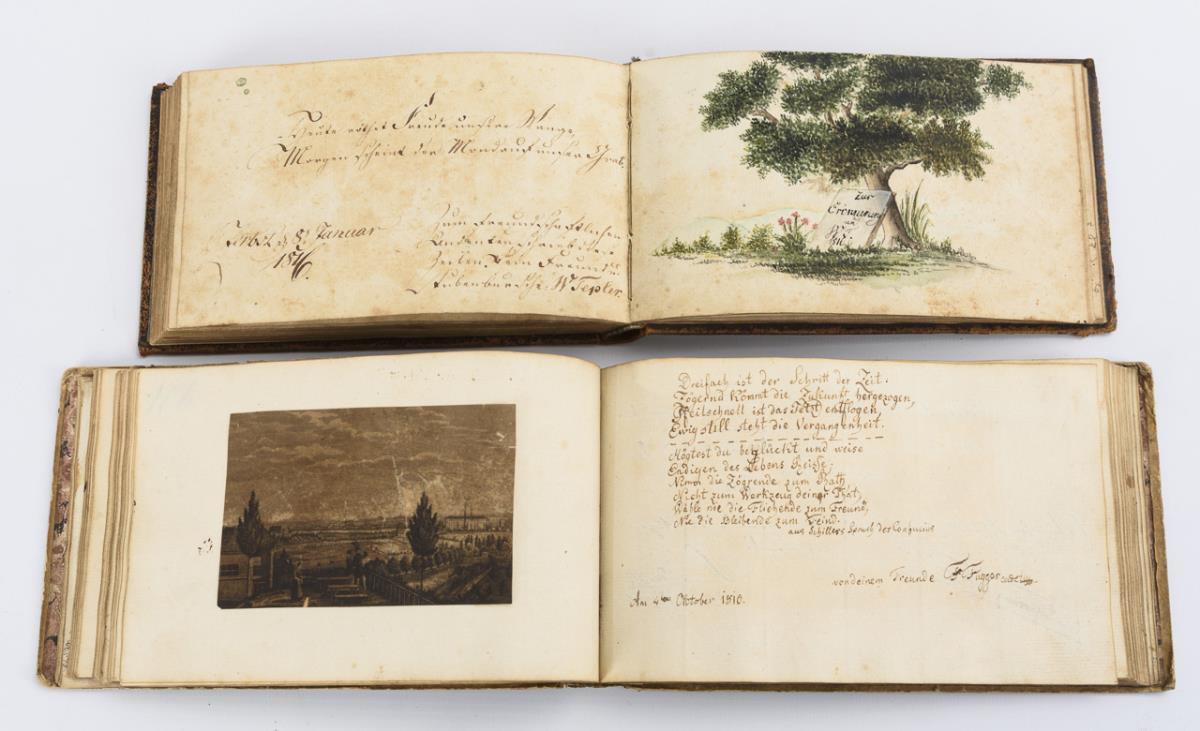 Heute röthet Freude unsere Wange,
Morgen scheint der Mond auf unser Grab.
d. 8. Januar
1816.
Zum Freundschaftlichen
Andenken schrieb diese
Zeilen Dein Freund u
Stubenbursche W Tepler.
Zur
Erinnerung
an
Dreifach ist der Schritt der Zeit.
Zögernd kommt die Zukunft hergezogen,
Pfeilschnell ist das Jetzt entflogen,
Ewig still steht die Vergangenheit.
Mögtest du beglückt und weise
Endigen des Lebens Reise,
Nimm die Zögernde zum Rath,
Nicht zum Werkzeug deiner That,
Wähle nie die Fliehende zum Freund,
Nie die Bleibende zum Feind.
aus Schillers Spruch des Confucius
von deinem Freunde Fugger
Am 4ten Oktober 1816.